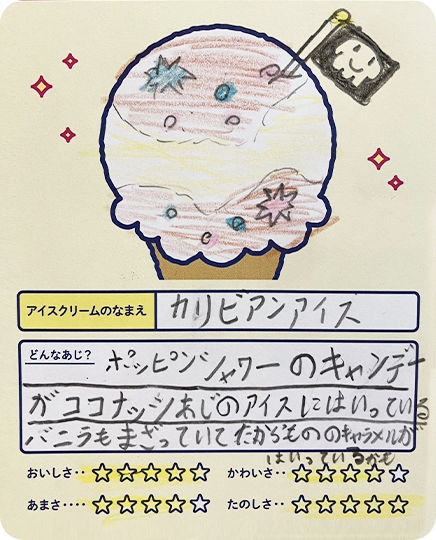 アイスクリームのなまえ カリビアンアイス
どんなあじ? ポッピンシャワーのキャンデー
がココナッツあじのアイスにはいっている
バニラもまざっていてたからもののキャラメルが
はいっているかも
おいしさ‥ ☆☆☆☆☆ かわいさ‥ ☆☆☆☆☆
あまさ‥‥ ☆☆☆☆☆ たのしさ‥ ☆☆☆☆☆